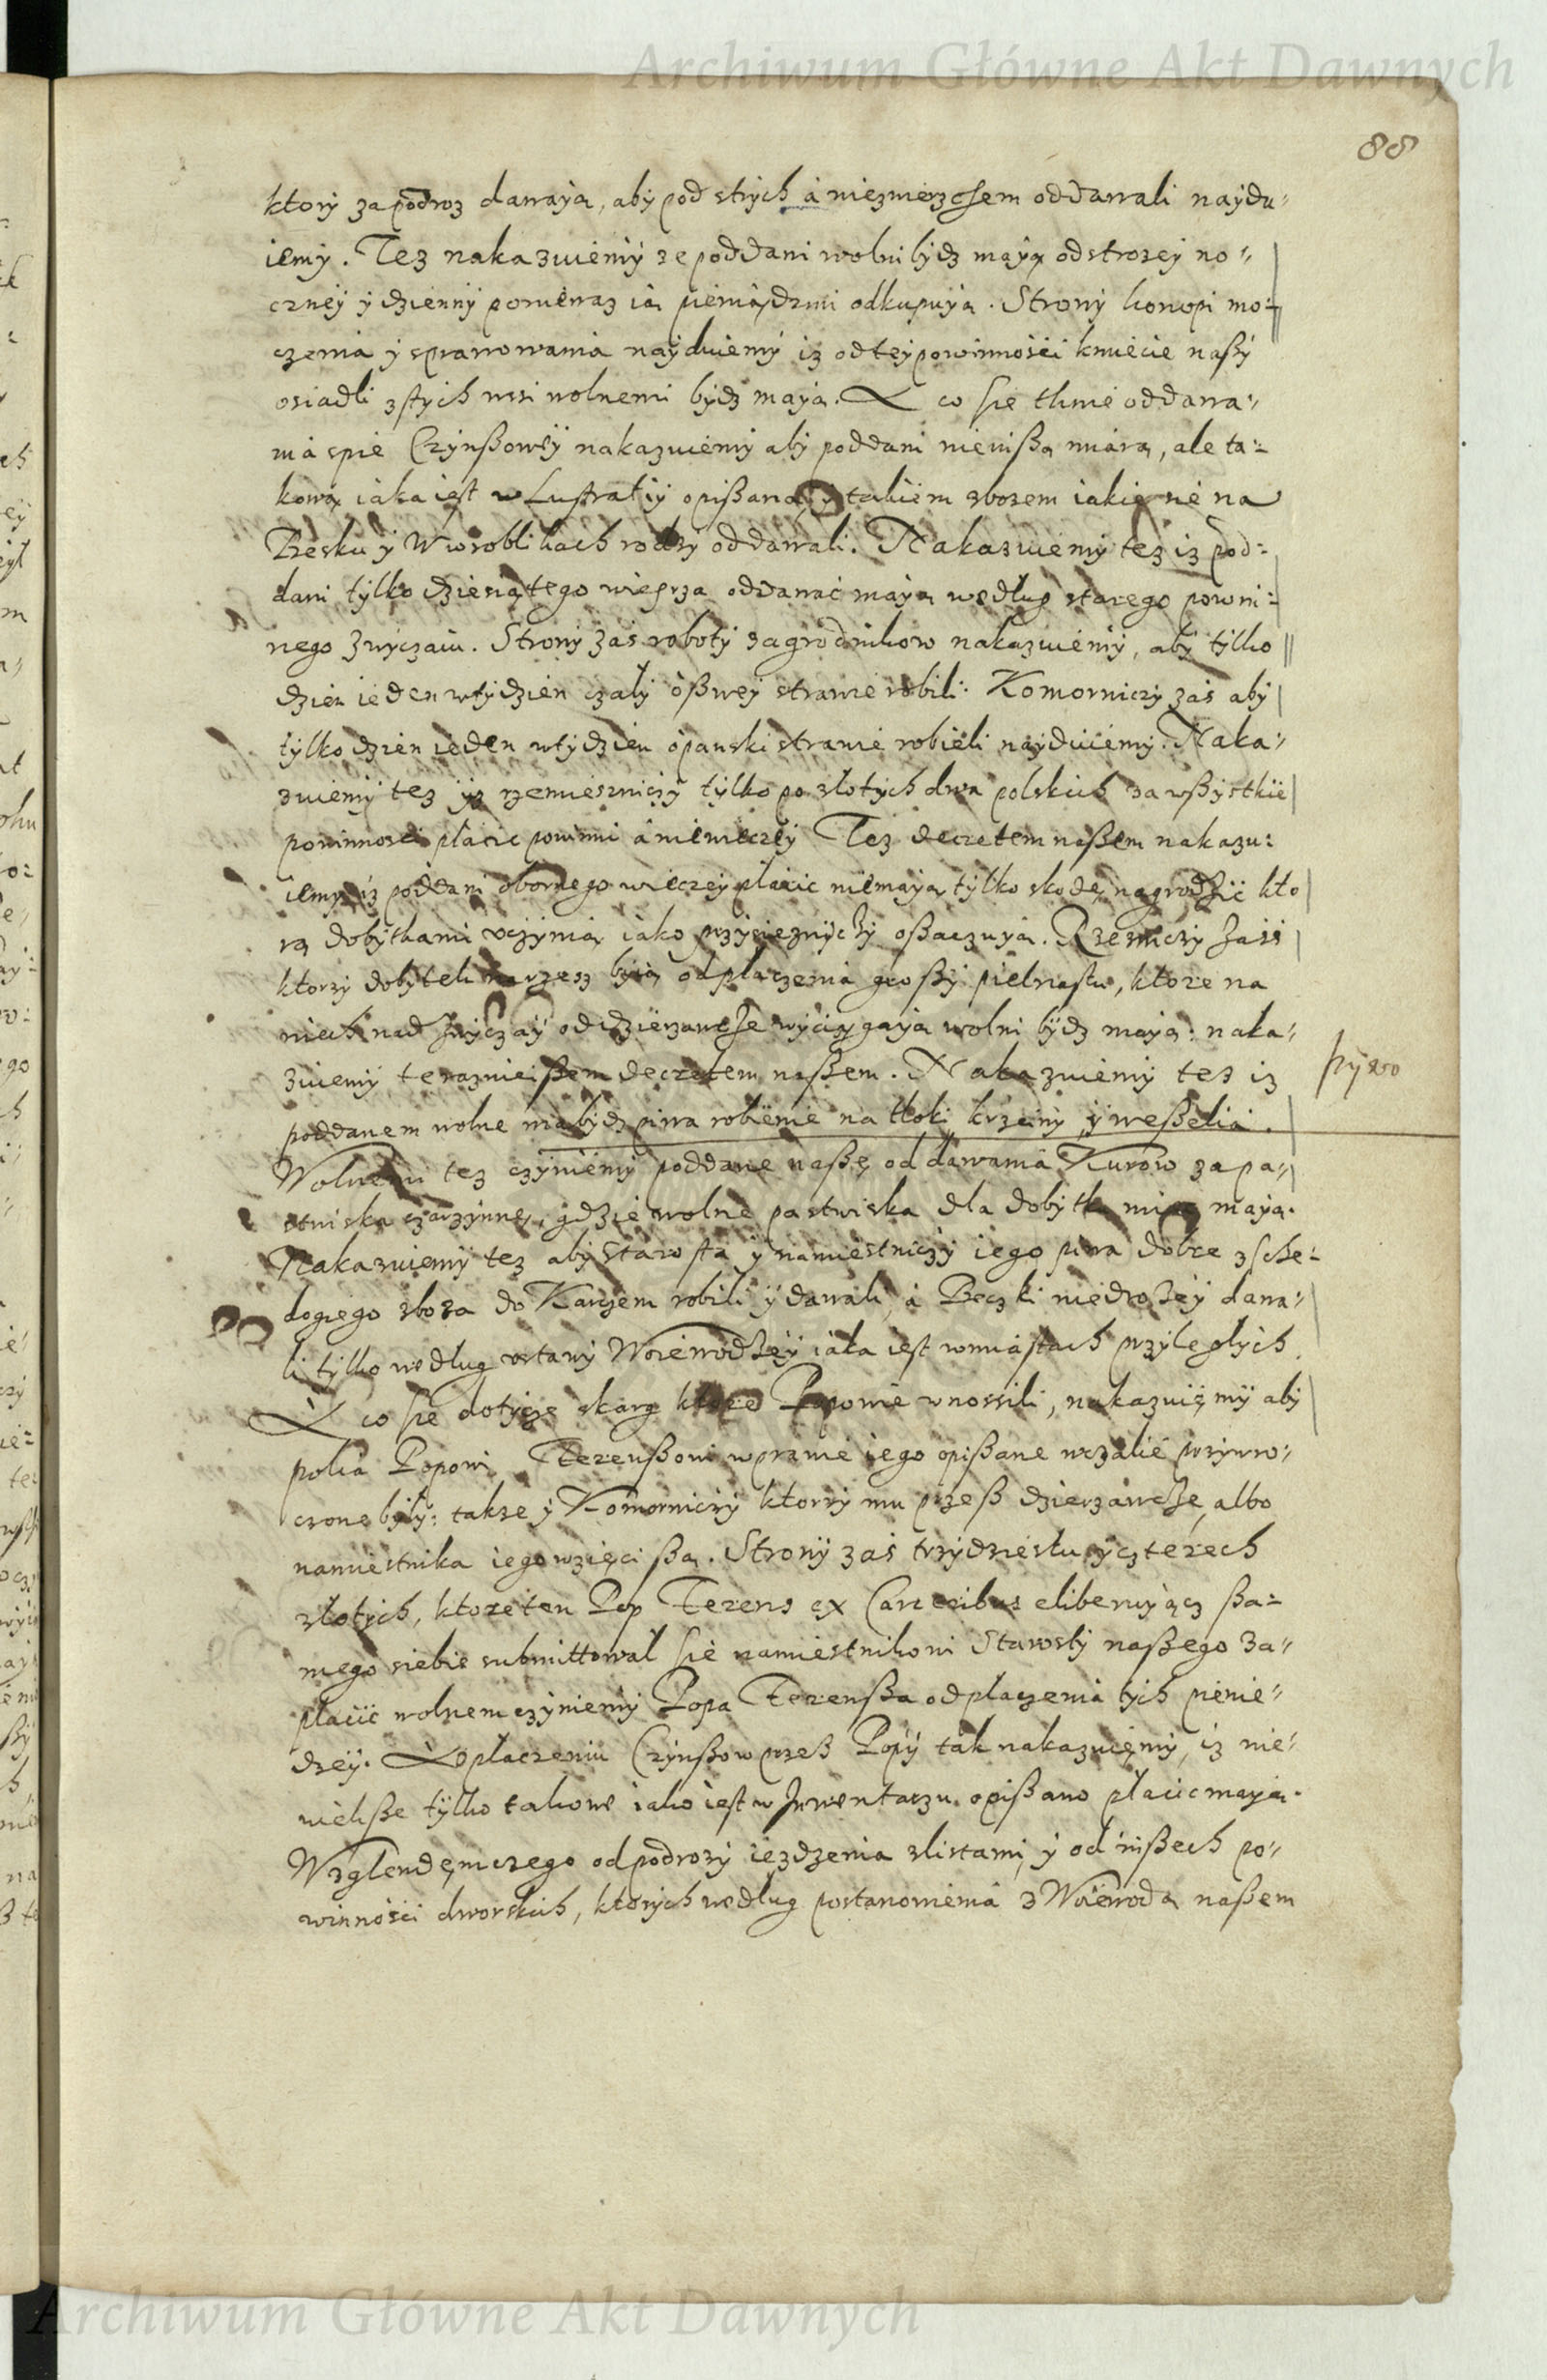 Archiwum Główne Akt Dawnych
88
ktorÿ za podroz dawaÿą, abÿ pod strÿch á niezwierzchem oddawali naÿdu„
iemÿ. Tez nakazuiemÿ ze poddani wolni bÿdz maÿą od strozeÿ no„
czneÿ ÿ dziennÿ poniewaz ią pieniądzmi odkupuÿą. Stronÿ konopi mo:
czenia ÿ sprawowania naÿduiemÿ iz od teÿ powinnosci kmiecie naßÿ
osiadli z tÿch wsi wolnemi bÿdz maÿą. A co sie tknie oddawa„
nia spie Czÿnßoweÿ nakazuiemÿ abÿ poddani niewißą miarą, ale ta:
kową iaka iest w Lustratiÿ opißana, ÿ takiem zbozem iakie sie na
Besku ÿ Wwroblikach rodzÿ oddawali. Nakazuiemÿ tez iz pod:
dani tÿlko dziesiątego wieprza oddawać maÿą według starego powin:
nego zwÿczaiu. Stronÿ zas robotÿ zagrodnikow nakazuiemÿ, abÿ tÿlko
dzien ieden w tÿdzien czalÿ o ßweÿ strawie robili. Komorniczÿ zas abÿ
tÿlko dzien ieden w tÿdzien o panski strawie robieli naÿduiemÿ. Naka„
zuiemÿ tez ÿz rzemiesniczÿ tÿlko po zlotÿch dwa polskich za wßÿstkie
powinnosci placic powinni á niewieczeÿ Tez decretem naßem nakazu:
iemÿ iz poddani obornego wieczeÿ placic niemaÿą tÿlko skodę nagrodzic kto
rą dobÿtkami vczÿnią iako przÿsieznÿczÿ oßaczuÿą. Rzezniczÿ zass
ktorzÿ dobÿtek na rzesz biią od placzenia großÿ pietnastu, ktore na
niech nad zwÿczaÿ od dzierzawcze wÿciągaÿą wolni bÿdz maÿą: naka„
zuiemÿ teraznieißem decretem naßem. Nakazuiemÿ tez iz
pÿwo
poddanem wolne ma bÿdz piwa robienie na tłoki, krzcinÿ, ÿ weßelia.
Wolnemi tez czÿniemÿ poddane naßę od dawania Kurow za pa„
stwiska czarzÿnne, gdzie wolne pastwiska dla dobÿtk miec maÿą.
Nakazuiemÿ tez abÿ Starosta ÿ namiestniczÿ iego piwa dobre z sche:
dogiego zboza do Karczem robili ÿ dawali, á Beczki niedrozeÿ dawa„
li tÿlko według vstawÿ Woiewodzeÿ iaka iest w miastach przÿległÿch.
A co sie dotÿcze skarg ktore Popowie wnossili, nakazuiemÿ abÿ
polia Popowi Terenßowi w prawie iego opißane wczalie przÿwro„
czone bÿłÿ: takze ÿ Komorniczÿ ktorzÿ mu przeß dzierzawcze, albo
namiestnika iego wzięci ßą. Stronÿ zas trzÿdziestu ÿ czterech
złotÿch, ktore ten Pop Terens ex Carceribus eliberuÿącz ßa:
mego siebie submittowal sie namiestnikowi Starostÿ naßego za„
placic wolnem czÿniemÿ Popa Terenßa od placzenia tÿch pienie„
dzeÿ. A o placzeniu Czÿnßow przeß Popÿ tak nakazuiemÿ, iz nie„
wiekße tÿlko takowe iako iest w Inwentarzu opißano placic maÿą.
Wzglendem czego od podrozÿ iezdzenia z listami, ÿ od inßech po„
winności dworskich, ktorÿch według postanowienia z Woiewodą naßem
Archiwum Główne Akt Dawnych